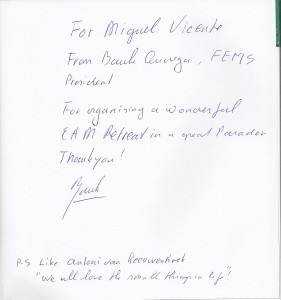 For Miguel Vicente
From Bauke Oudega, FEMS
President
For organising a wonderful
EAM Retreat in a great Parador
Thankyou!
P.S Like Antoni van Leeuwenhoek
"we all love the small things in life"!